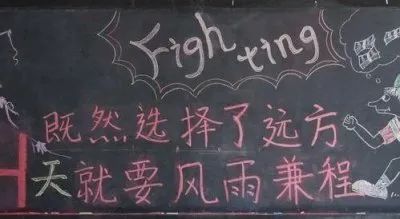 Fighting
既然选择了远方
天就要风雨兼程